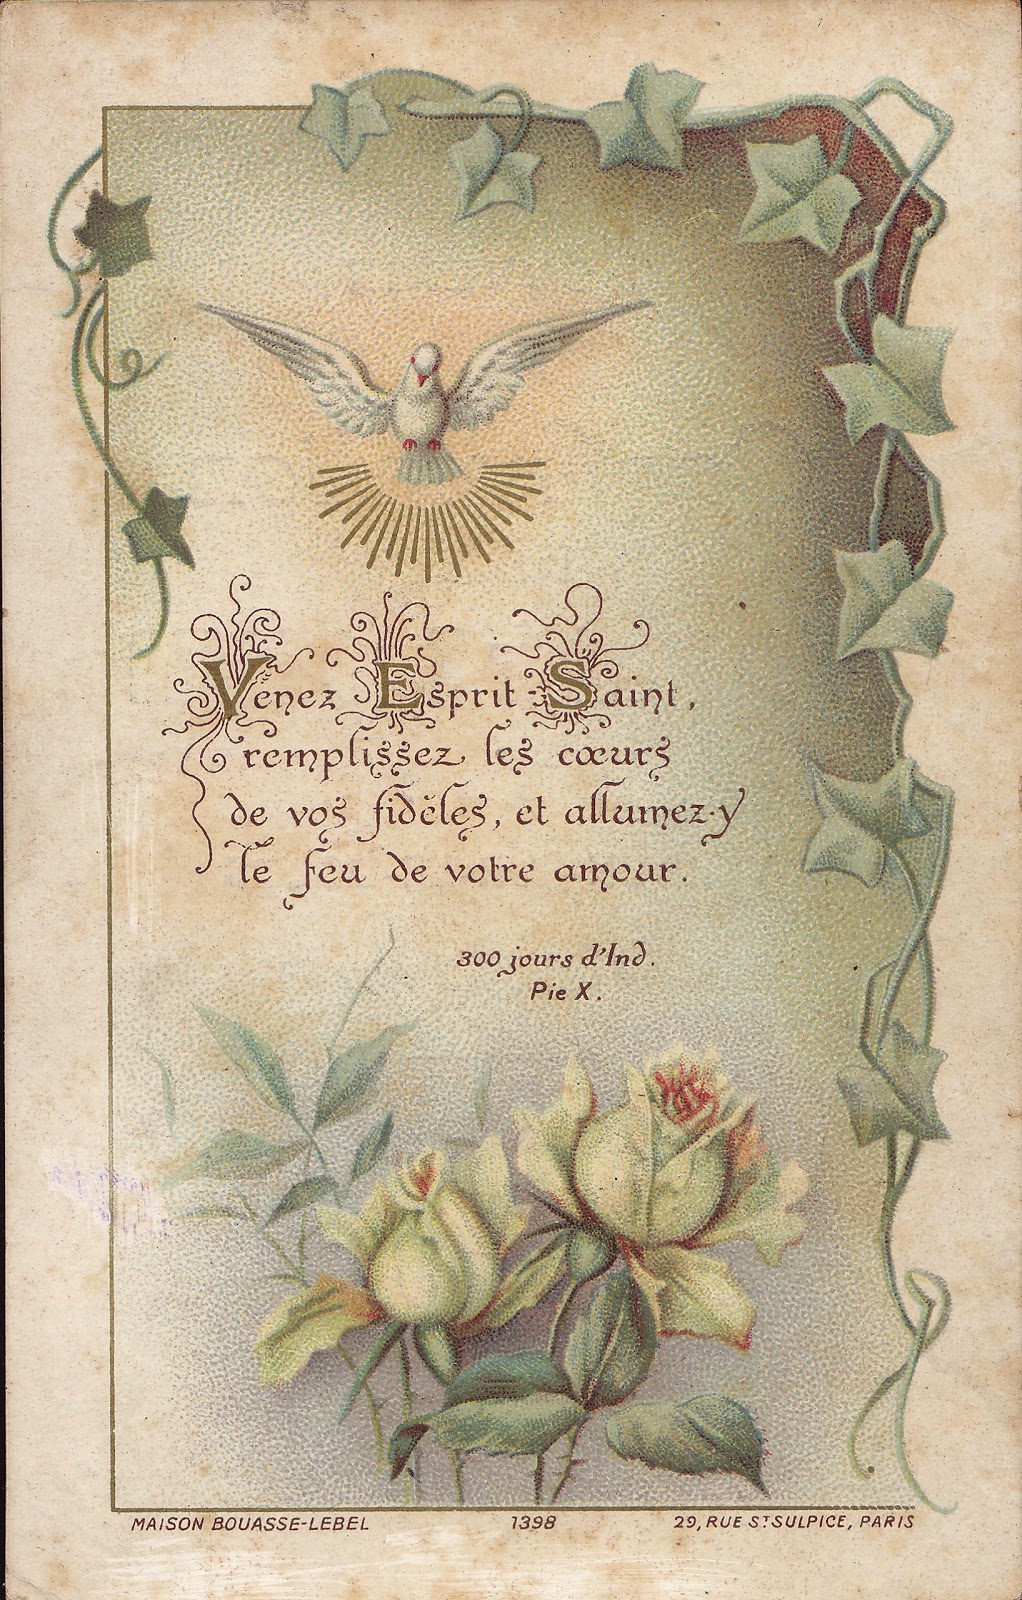 Venez Esprit Saint,
remplissez les cœurs
de vos fidèles, et allumez-y
le feu de votre amour.
300 jours d'Ind.
Pie X.
MAISON BOUASSE-LEBEL 1398 29, RUE ST SULPICE, PARIS